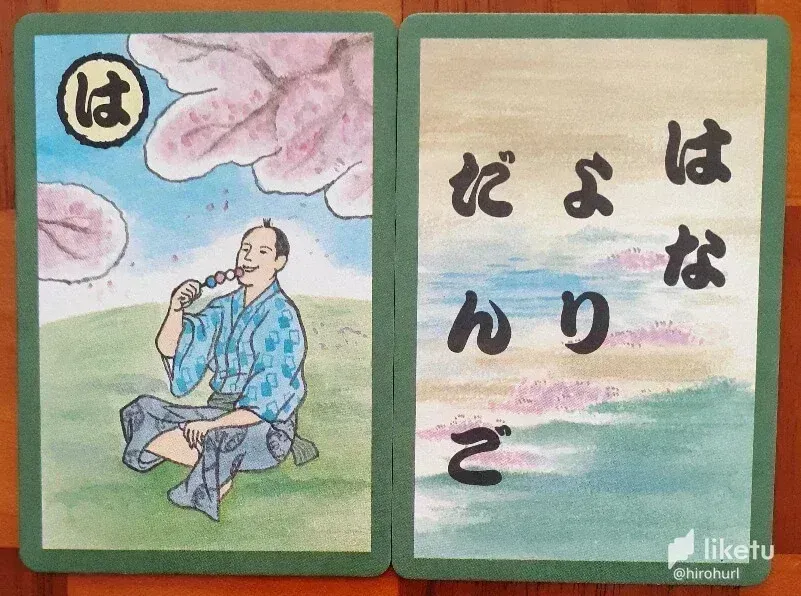 は
はな
より
だんご
liketu
@hirohurl